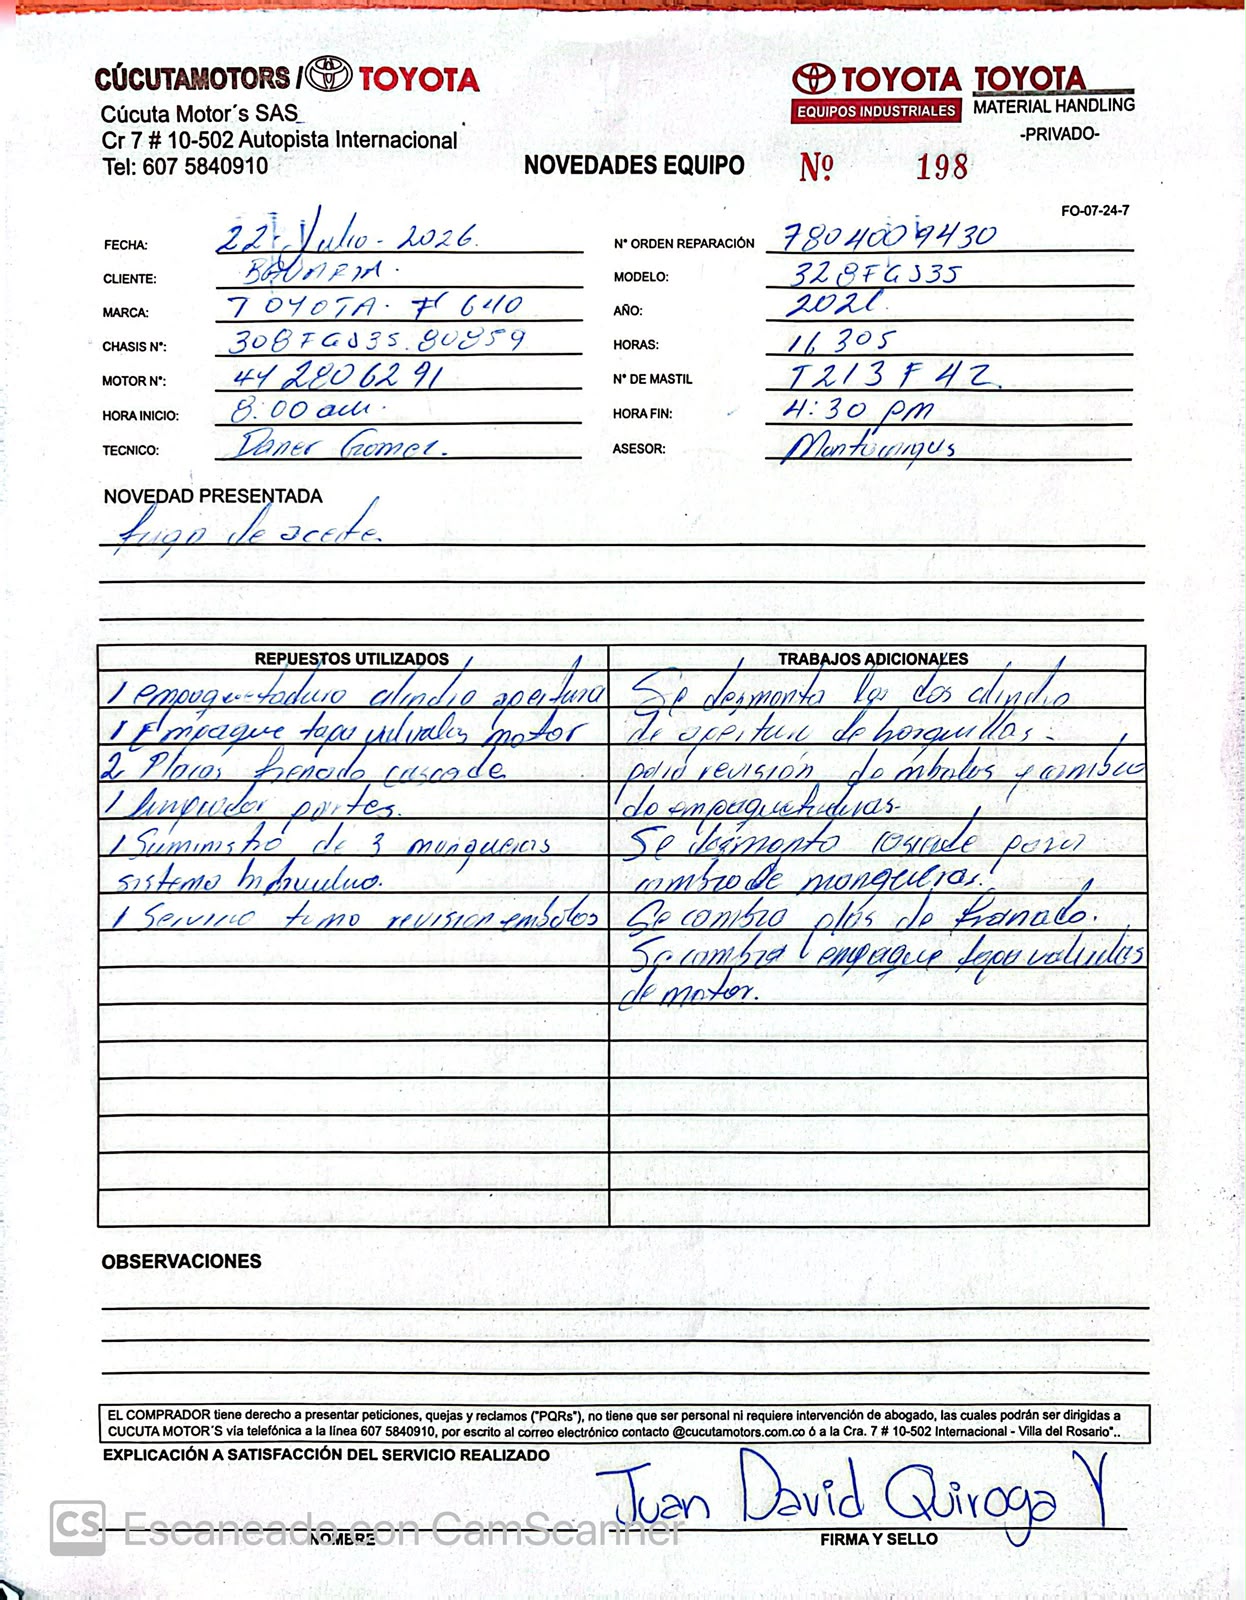 CÚCUTAMOTORS / TOYOTA
Cúcuta Motor´s SAS
Cr 7 # 10-502 Autopista Internacional
Tel: 607 5840910
TOYOTA
EQUIPOS INDUSTRIALES
TOYOTA
MATERIAL HANDLING
-PRIVADO-
NOVEDADES EQUIPO
Nº 198
FO-07-24-7
FECHA: 22 Julio - 2026.
N° ORDEN REPARACIÓN 7804009430
CLIENTE:
MODELO: 328FGJ35
MARCA: TOYOTA. # 640
AÑO: 2021.
CHASIS N°: 308FGJ35.80859
HORAS: 16305
MOTOR N°: 4Y 2806291
N° DE MASTIL T213F42
HORA INICIO: 8:00 am.
HORA FIN: 4:30 pm
TECNICO: Daner Gomez.
ASESOR:
NOVEDAD PRESENTADA
fuga de aceite.
REPUESTOS UTILIZADOS
1 empaquetadura cilindro apertura
1 Empaque tapa valvulas motor
2 Placas frenado cascade
1 limpiador partes.
1 Suministro de 3 mangueras
sistema hidraulico.
1 Servicio torno revision embolos
TRABAJOS ADICIONALES
Se desmonta los dos cilindro
de apertura de horquillas -
para revisión de mbolos y cambio
de empaquetaduras-
Se desmonta cascade para
cambio de mangueras.
Se cambio plas de Franado.
Se cambia empaque tapa valvulas
de motor.
OBSERVACIONES
EL COMPRADOR tiene derecho a presentar peticiones, quejas y reclamos ("PQRs"), no tiene que ser personal ni requiere intervención de abogado, las cuales podrán ser dirigidas a
CUCUTA MOTOR´S via telefónica a la línea 607 5840910, por escrito al correo electrónico contacto @cucutamotors.com.co ó a la Cra. 7 # 10-502 Internacional - Villa del Rosario"..
EXPLICACIÓN A SATISFACCIÓN DEL SERVICIO REALIZADO
Juan David Quiroga Y
NOMBRE
FIRMA Y SELLO
CS Escaneado con CamScanner